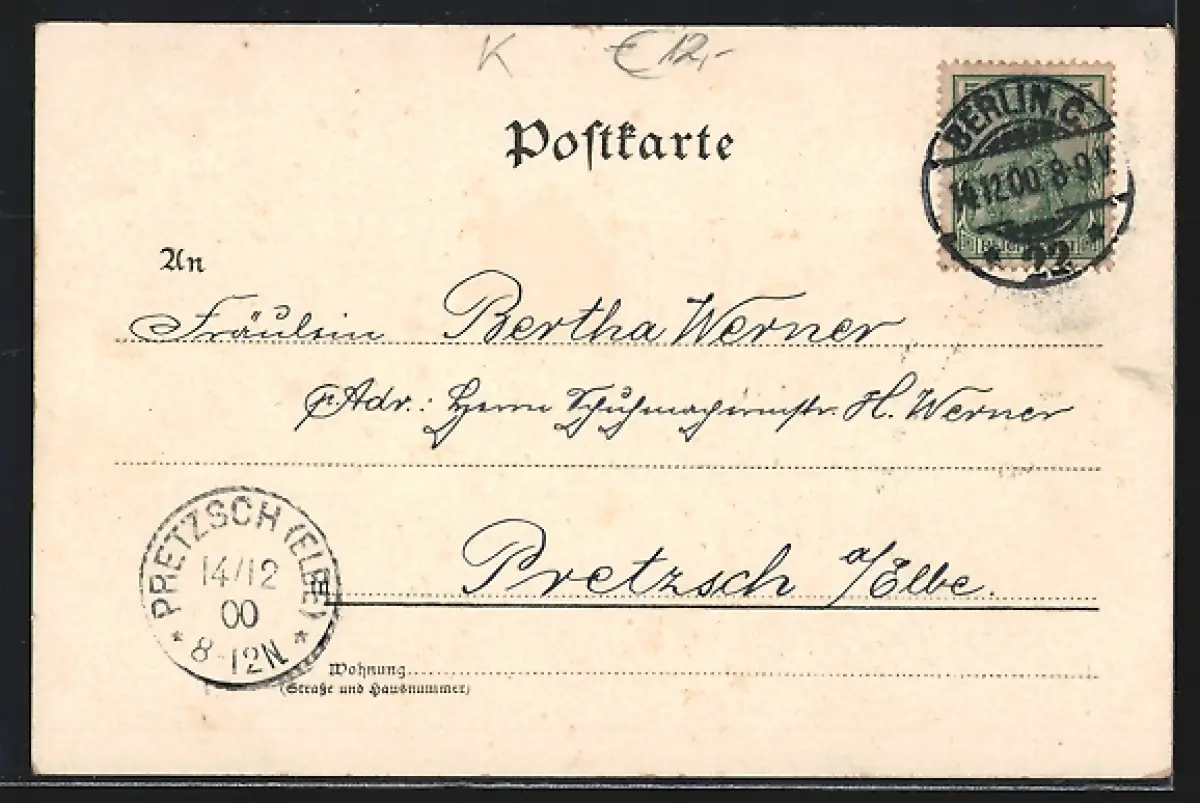 K € 12,-
Postkarte
BERLIN.C.
14.12.00. 8-9 V.
* 22 *
An
Fräulein Bertha Werner
p. Adr.: Herrn Schuhmachermstr. H. Werner
Pretzsch a/Elbe.
PRETZSCH (ELBE)
14/12
00
* 8-12N *
In
Wohnung
(Straße und Hausnummer)